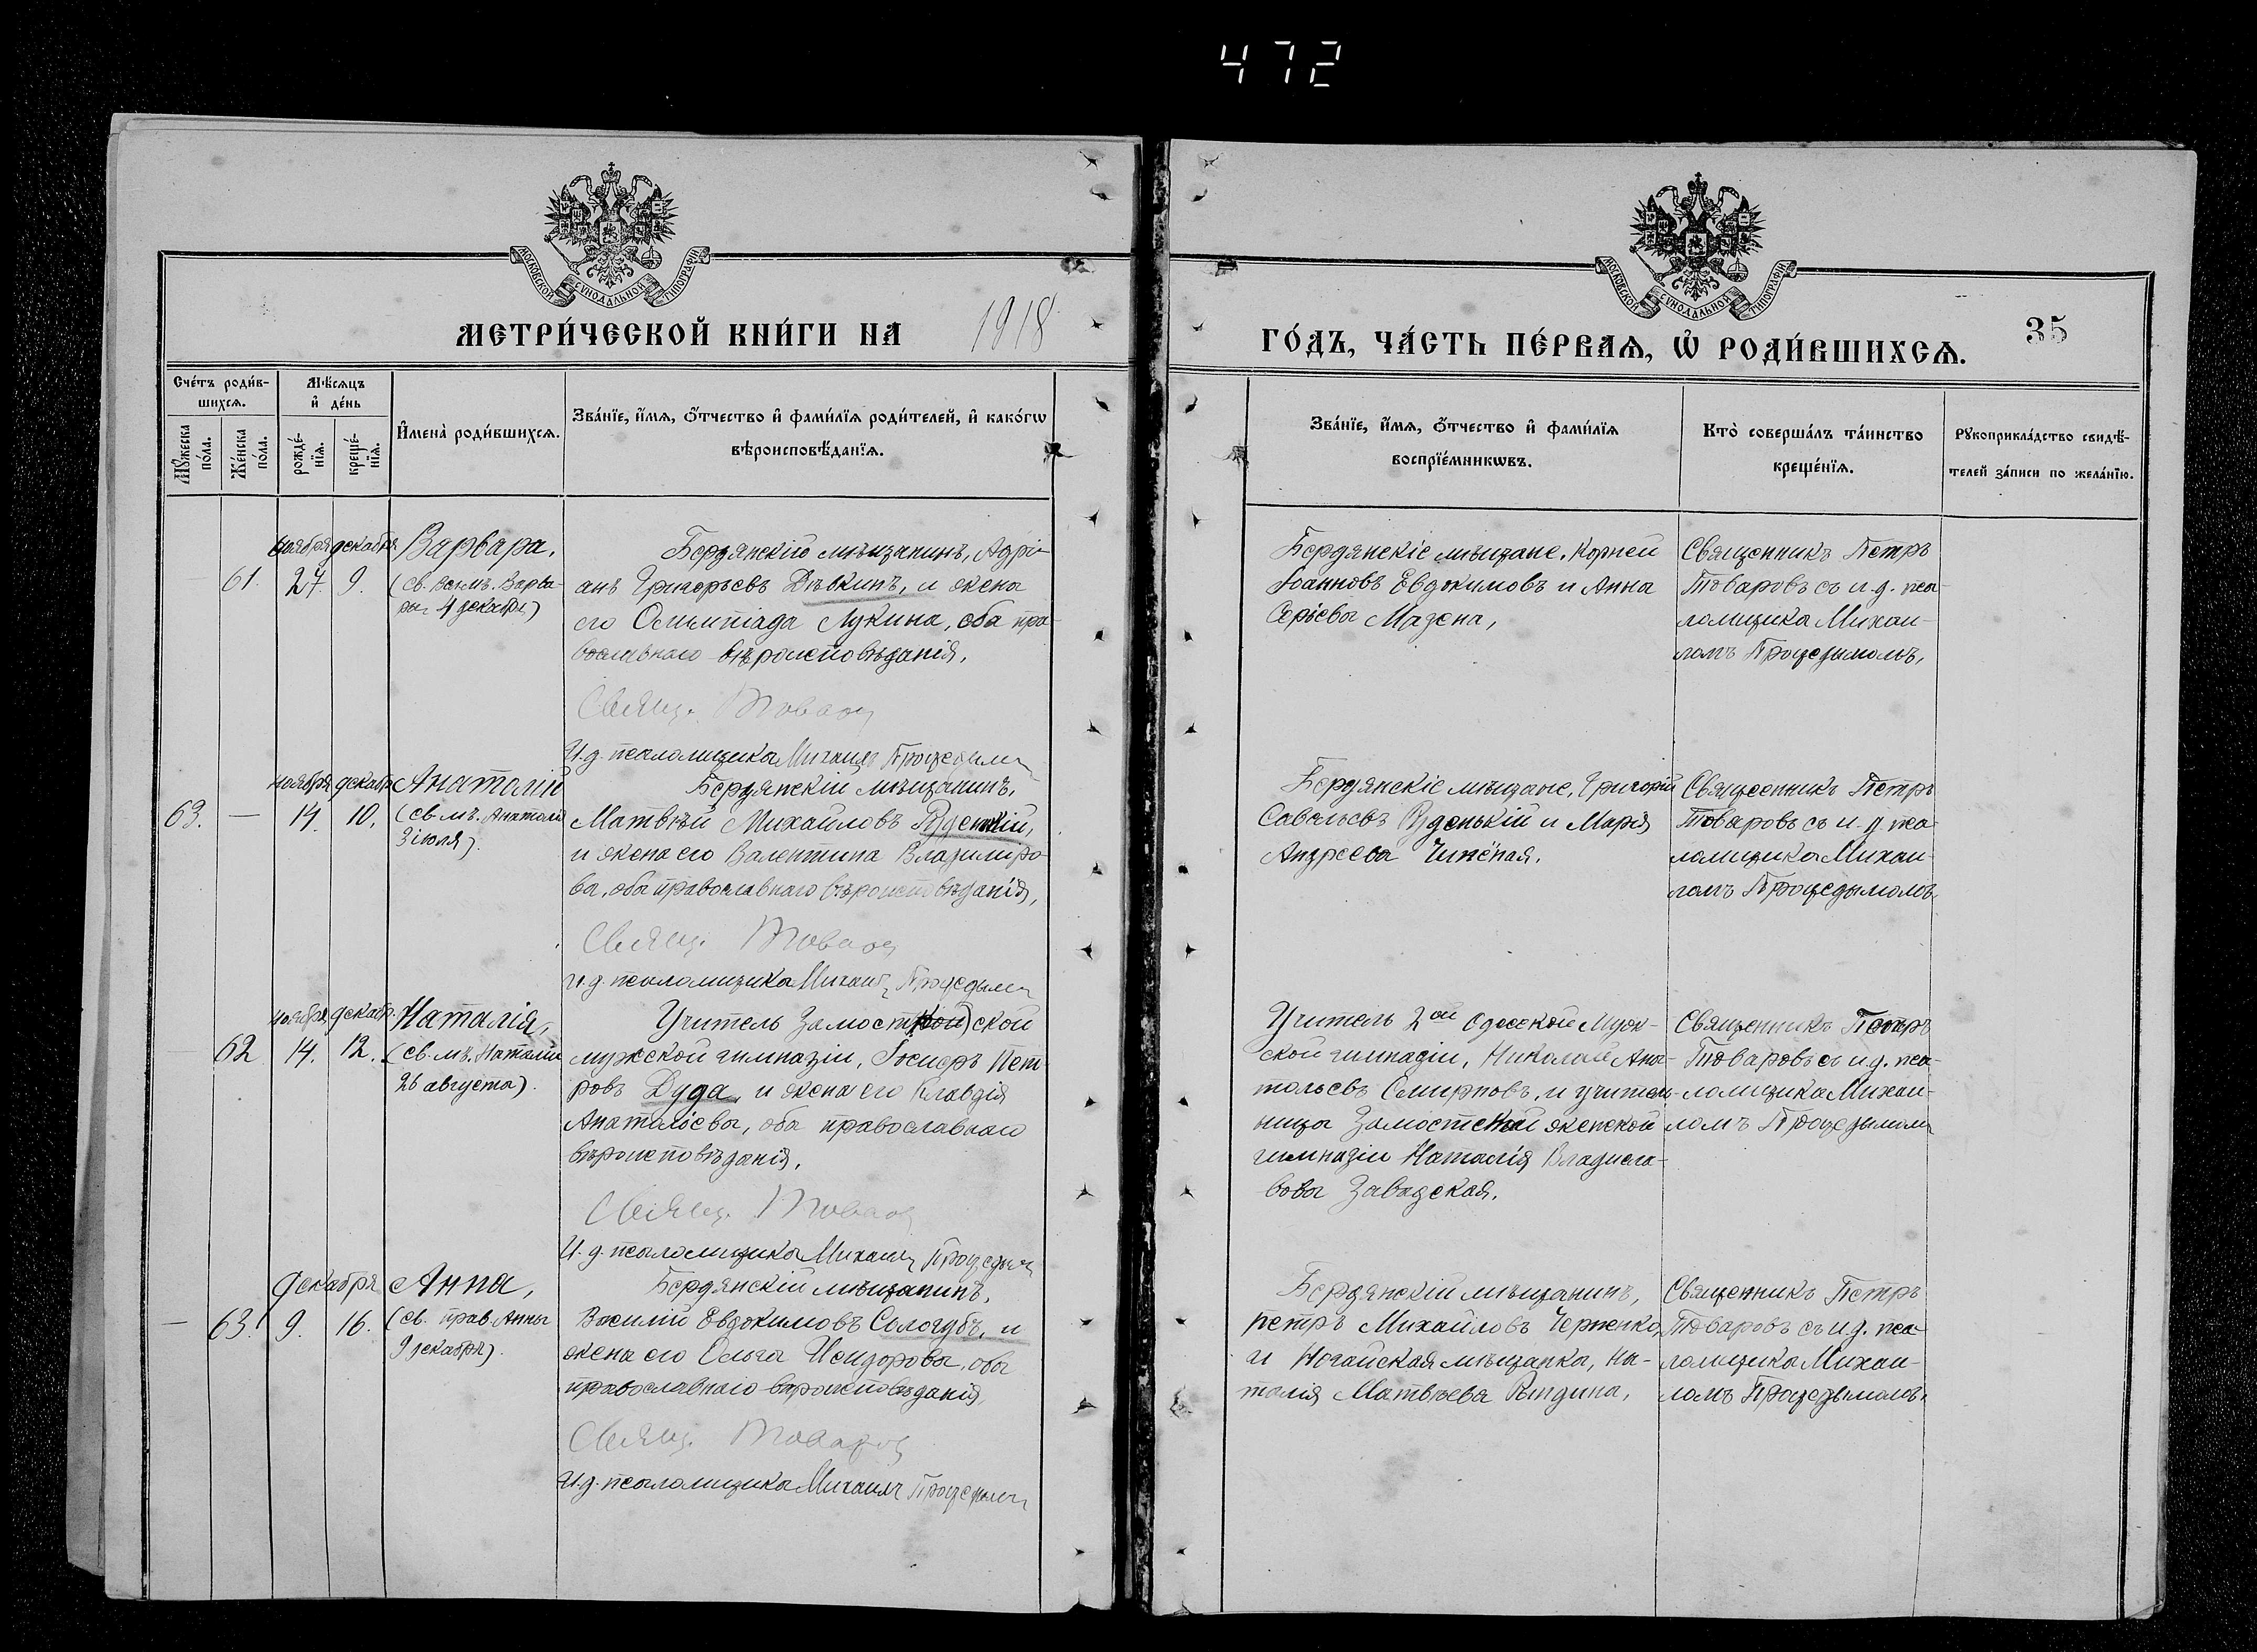 472
МОСКОВСКОЙ СУНОДАЛЬНОЙ ТИПОГРАФІИ
МОСКОВСКОЙ СУНОДАЛЬНОЙ ТИПОГРАФІИ
МЕТРИ́ЧЕСКОЙ КНИ́ГИ НА 1918
ГО́ДЪ, ЧА́СТЬ ПЕ́РВАѦ, Ѡ҆ РОДИ́ВШИХСѦ.
35
Сче́тъ роди́в-
шихсѧ.
Мѣ́сѧцъ
и҆ де́нь
Мꙋ́жеска
по́ла.
Же́нска
по́ла.
рожде́-
нїѧ.
креще́-
нїѧ.
И҆мена̀ роди́вшихсѧ.
Зва́нїе, и҆́мѧ, ѻ҆́тчество и҆ фами́лїѧ роди́телей, и҆ како́гѡ
вѣроисповѣ́данїѧ.
Зва́нїе, и҆́мѧ, ѻ҆́тчество и҆ фами́лїѧ
воспрїе́мникѡвъ.
Кто̀ соверша́лъ та́инство
креще́нїѧ.
Рꙋкоприкла́дство свидѣ́-
телей за́писи по жела́нїю.
61.
ноября 27.
декабря 9.
Варвара,
(св. Велм. Варва-
ры 4 декабря)
Бердянскій мѣщанинъ, Адрі-
анъ Григорьевъ Дѣвкинъ, и жена
его Олимпіада Лукина, оба пра-
вославнаго вѣроисповѣданія,
Свящ. Товаров
И.д. псаломщика Михаилъ
Бердянскіе мѣщане, Корней
Іоанновъ Евдокимовъ и Анна
Мазена,
Священникъ Петръ
Товаровъ съ и.д. пса-
ломщика Михаи-
ломъ Процедымомъ,
63. —
ноября 14.
декабр 10.
Анатолій
(св. мъ. Анатолія
3 іюля).
Бердянскій мѣщанинъ,
Матвѣй Михайловъ Руденкій,
и жена его Валентина Владиміро-
ва, оба православнаго вѣроисповѣданія,
Свящ. Товаров
И.д. псаломщика Михаилъ
Бердянскіе мѣщане, Григорій
Савельевъ Руденькій и Марія
Андреева
Священникъ Петръ
Товаровъ съ и.д. пса-
ломщика Михаи-
ломъ Процедымомъ,
62
ноября 14.
декабр. 12.
Наталія,
(св. мъ. Наталіи
26 августа).
Учитель Замост ской
мужской гимназіи, Госифъ Пет-
ровъ Дуда, и жена его Клавдія
Анатоліева, оба православнаго
вѣроисповѣданія,
Свящ. Товаров
И.д. псаломщика Михаилъ
Учитель 2ой Одесской Муж-
ской гимназіи, Николай Ана-
тольевъ Смирновъ, и учитель-
ница Замостской женской
гимназіи Наталія Владисла-
вова Завадская.
Священникъ Петръ
Товаровъ съ и.д. пса-
ломщика Михаи-
ломъ Процедымомъ
— 63.
декабря
9. 16.
Анна,
(св. прав. Анны
9 декабря).
Бердянскій мѣщанинъ,
Василій Евдокимовъ Сологубъ, и
жена его Ольга Исидорова, оба
православнаго вѣроисповѣданія,
Свящ. Товаров
И.д. псаломщика Михаилъ
Бердянскій мѣщанинъ,
Петръ Михайловъ Черненко,
и Ногайская мѣщанка, На-
талія Матвѣева Рындина,
Священникъ Петръ
Товаровъ съ и.д. пса-
ломщика Михаи-
ломъ Процедымомъ,